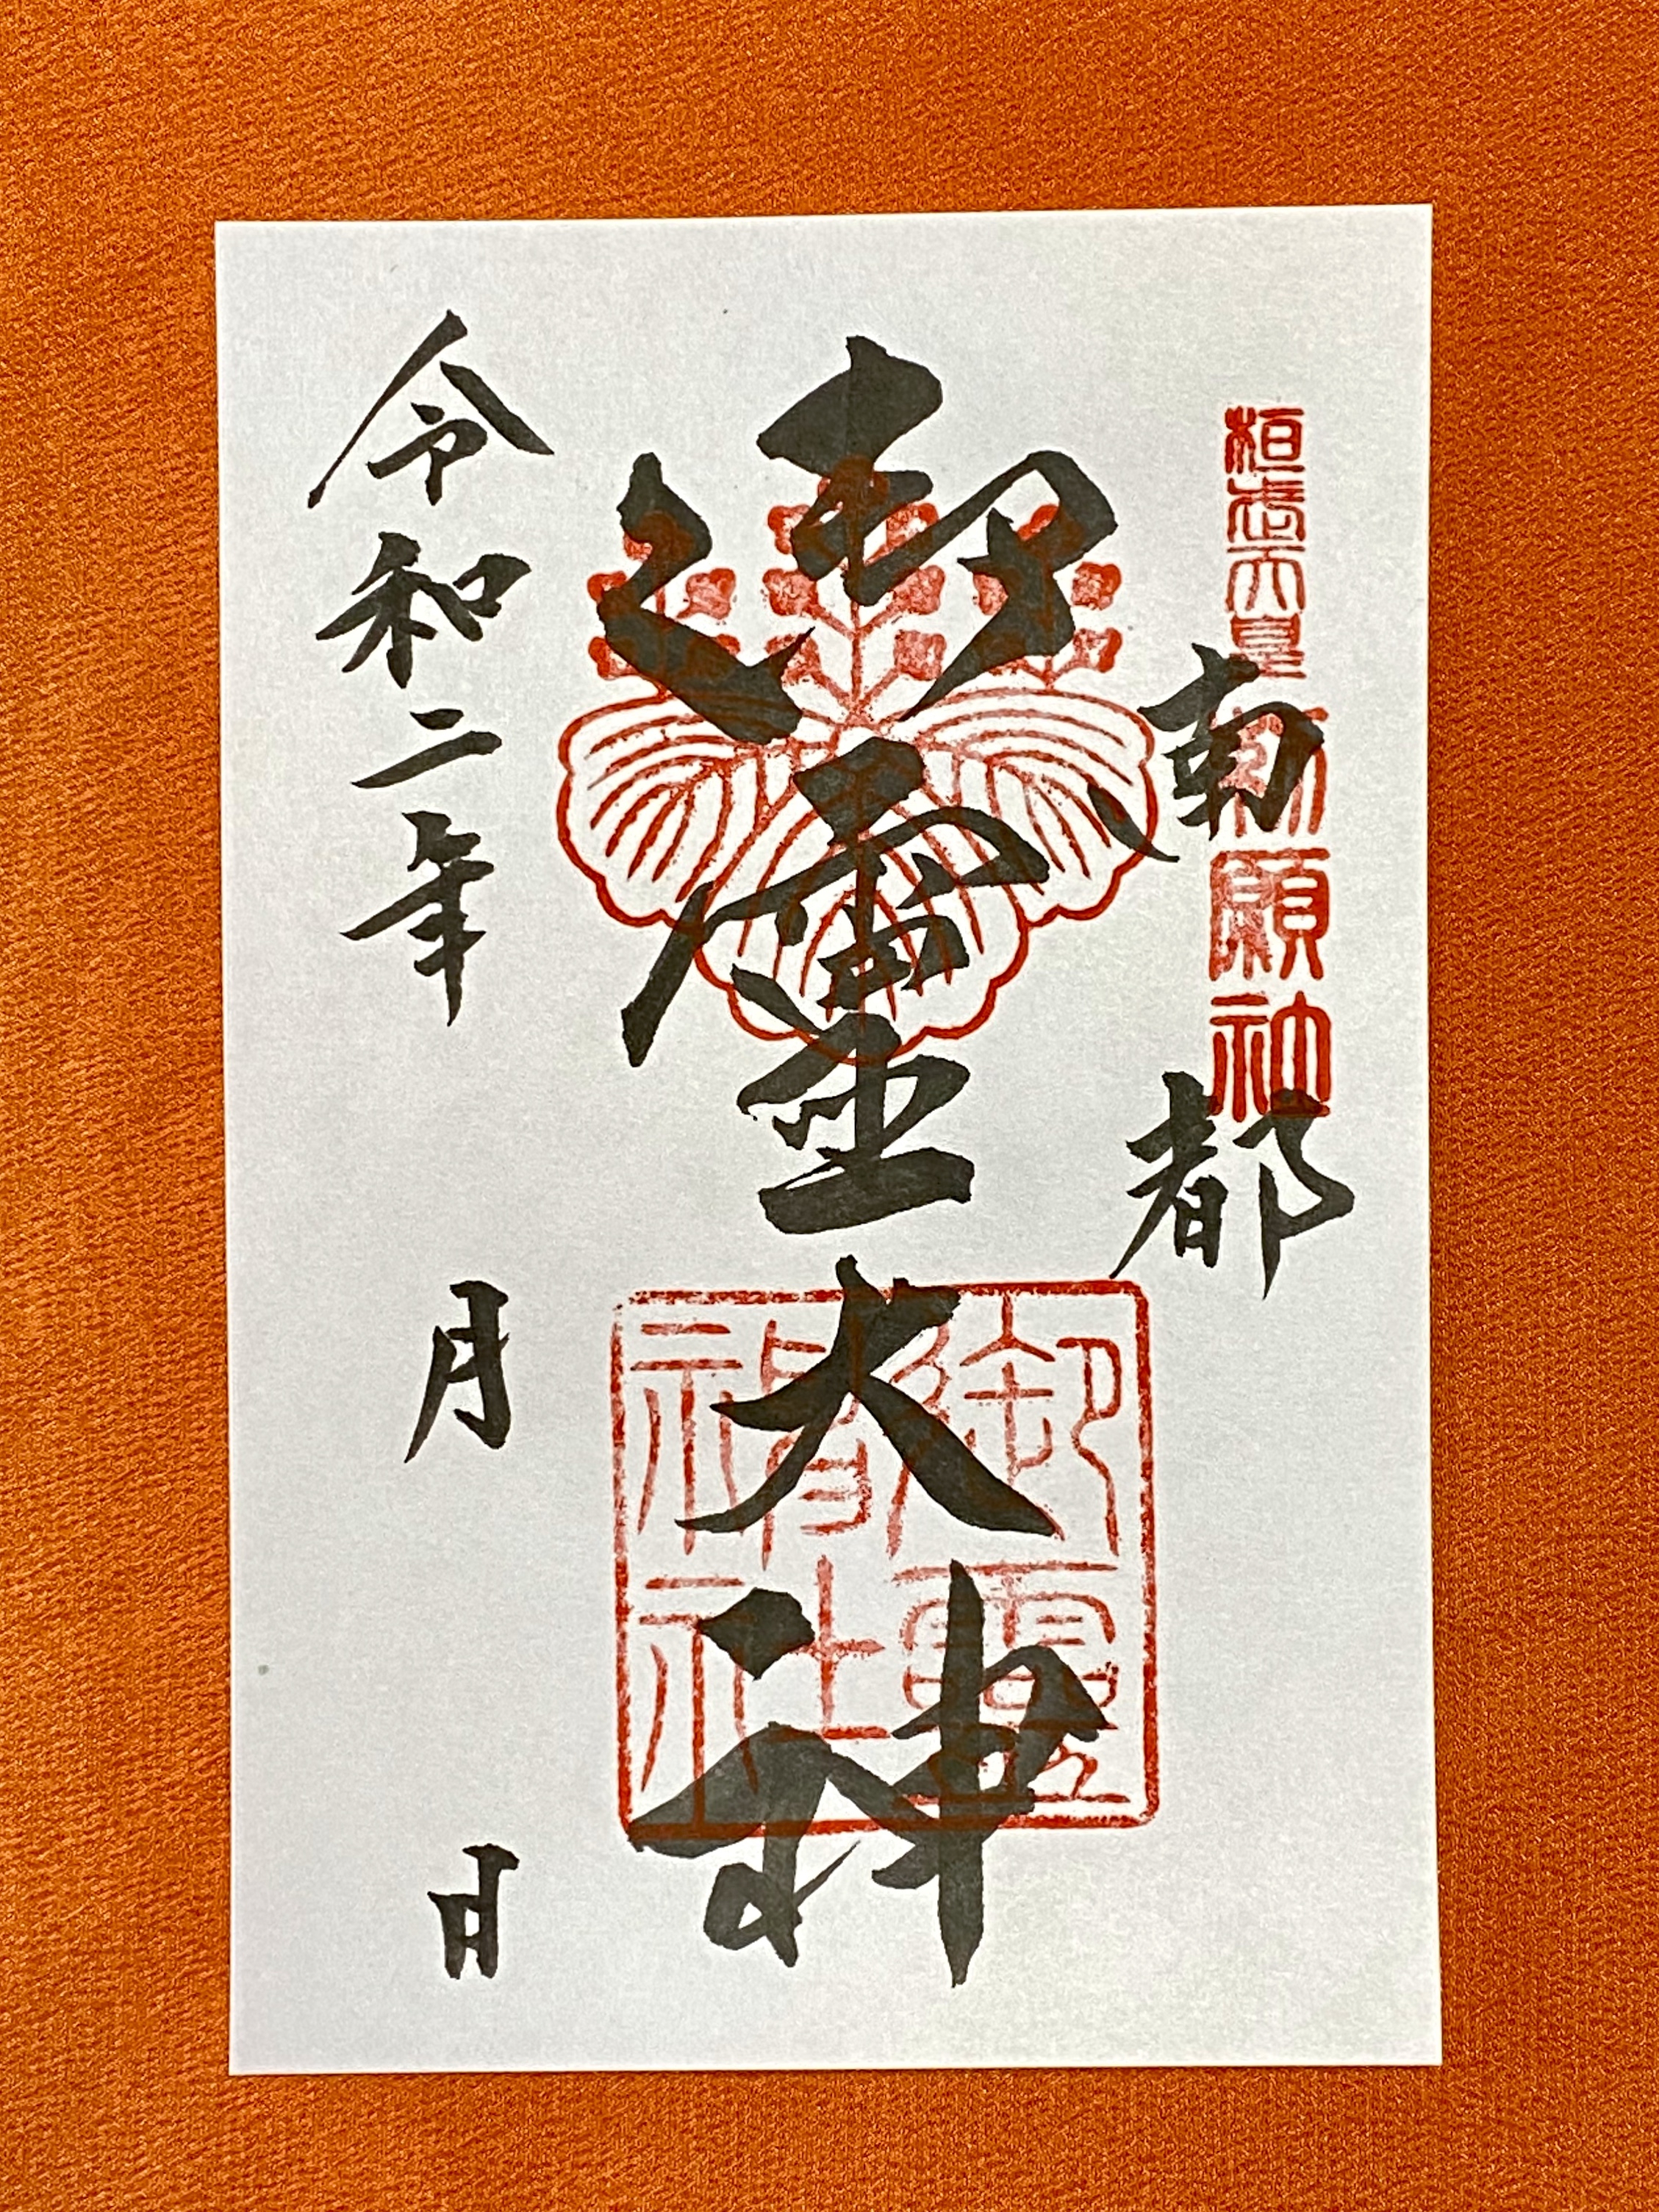 桓武天皇
勅願神社
南都
御霊大神
御靈
神社
令和二年　月　日